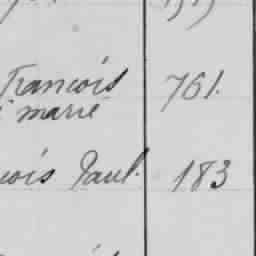 François 761.
marie
çois Paul. 183